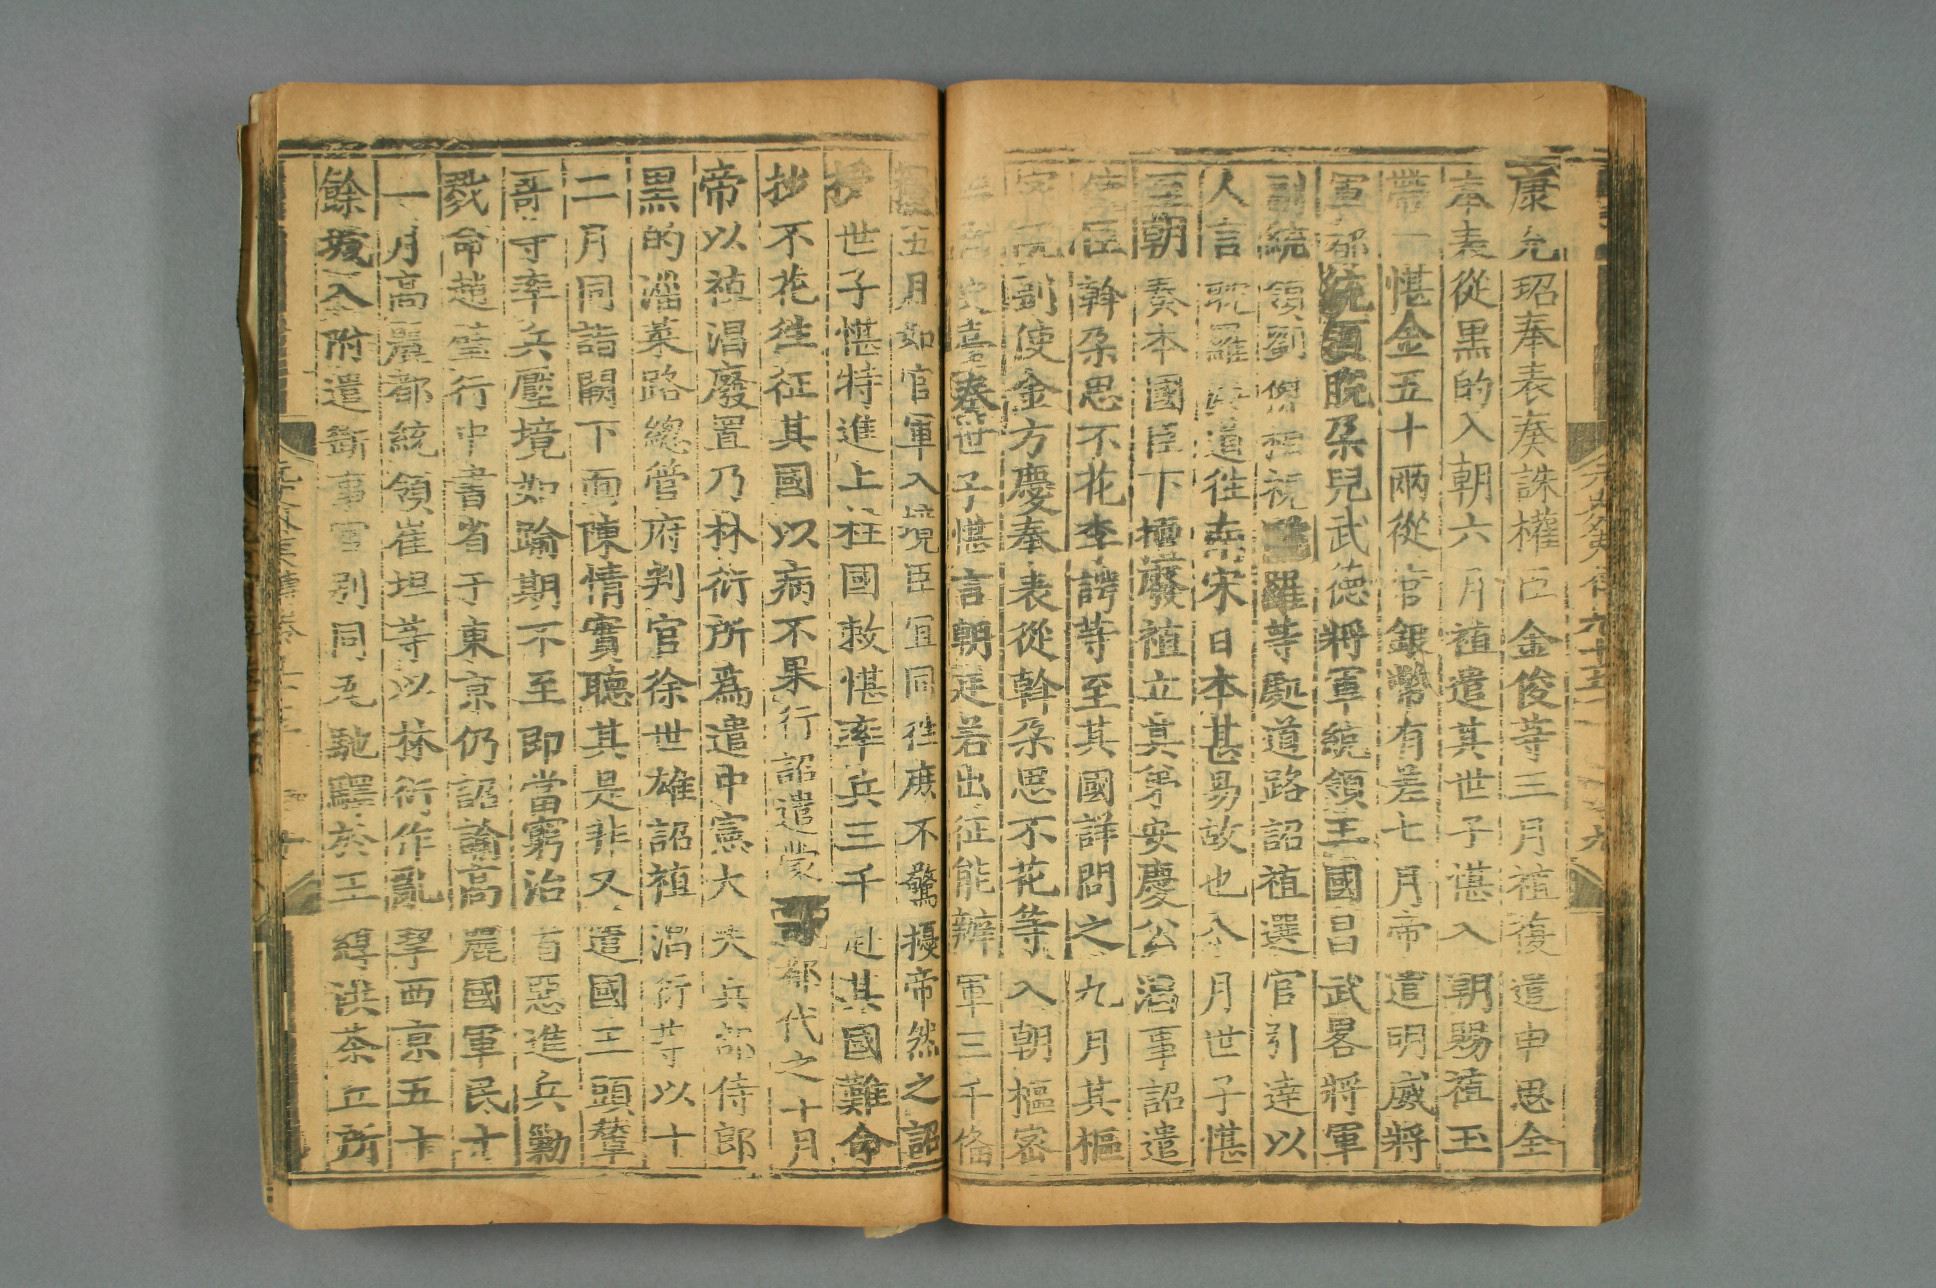 康允珆奉表奏誅權臣金俊等三月禃復遣申思佺
奉表從黑的入朝六月禃遣其世子愖入朝賜禃玉
帶一愖金五十兩從官銀幣有差七月帝遣明威將
軍都統領脫朶兒武德將軍統領王國昌武畧將軍
副統領劉傑相視耽羅等處道路詔禃選官引達以
人言耽羅海道往南宋日本甚易故也八月世子愖
至朝奏本國臣下擅廢禃立其弟安慶公淐事詔遣
使臣斡朶思不花李諤等至其國詳問之九月其樞
密院副使金方慶奉表從斡朶思不花等入朝樞密
院御史臺奏世子愖言朝廷若出征能辦軍三千俻
糧五月如官軍入境臣宜同往庶不驚擾帝然之詔
授世子愖特進上柱國敕愖率兵三千赴其國難命
抄不花往征其國以病不果行詔遣蒙哥都代之十月
帝以禃淐廢置乃林衍所爲遣中憲大夫兵部侍郎
黑的淄萊路總管府判官徐世雄詔禃淐衍等以十
二月同詣闕下面陳情實聽其是非又遣國王頭輦
哥等率兵壓境如踰期不至即當窮治首惡進兵勦
戮命趙璧行中書省于東京仍詔諭高麗國軍民十
一月高麗都統領崔坦等以林衍作亂挈西京五十
餘城入附遣斷事官別同瓦馳驛於王綧洪茶丘所